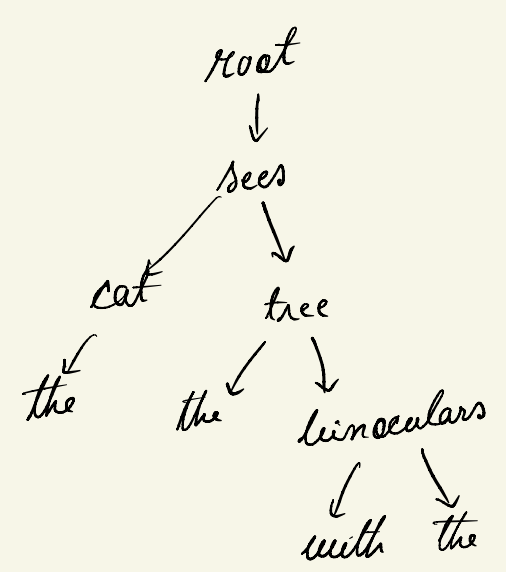 root
sees
cat
tree
the
the
binoculars
with
the